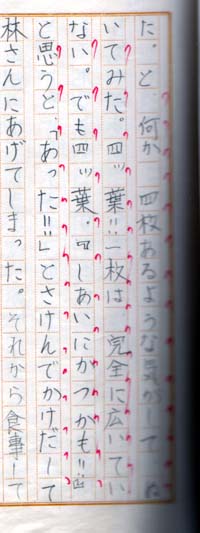 た。と何か四枚あるような気がしてぬ
いてみた。四ッ葉!!一枚は完全に広いてい
ない。でも四ッ葉。『しあいにかつかも!!』
と思うと、「あった!!」とさけんでかけだして
林さんにあげてしまった。それから食事して